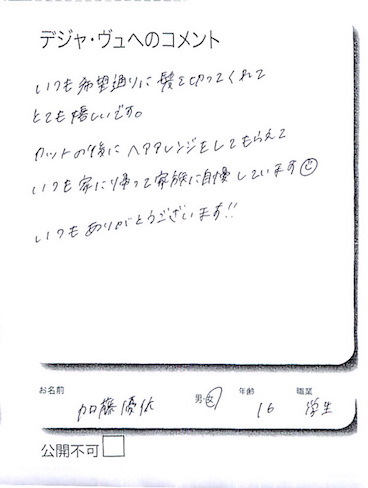 デジャ・ヴュへのコメント
いつも希望通りに髪を切ってくれて
とても嬉しいです。
カットの後にヘアアレンジをしてもらえて
いつも家に帰って家族に自慢しています☺
いつもありがとうございます!!
お名前 加藤優依 男・女 年齢 16 職業 学生
公開不可